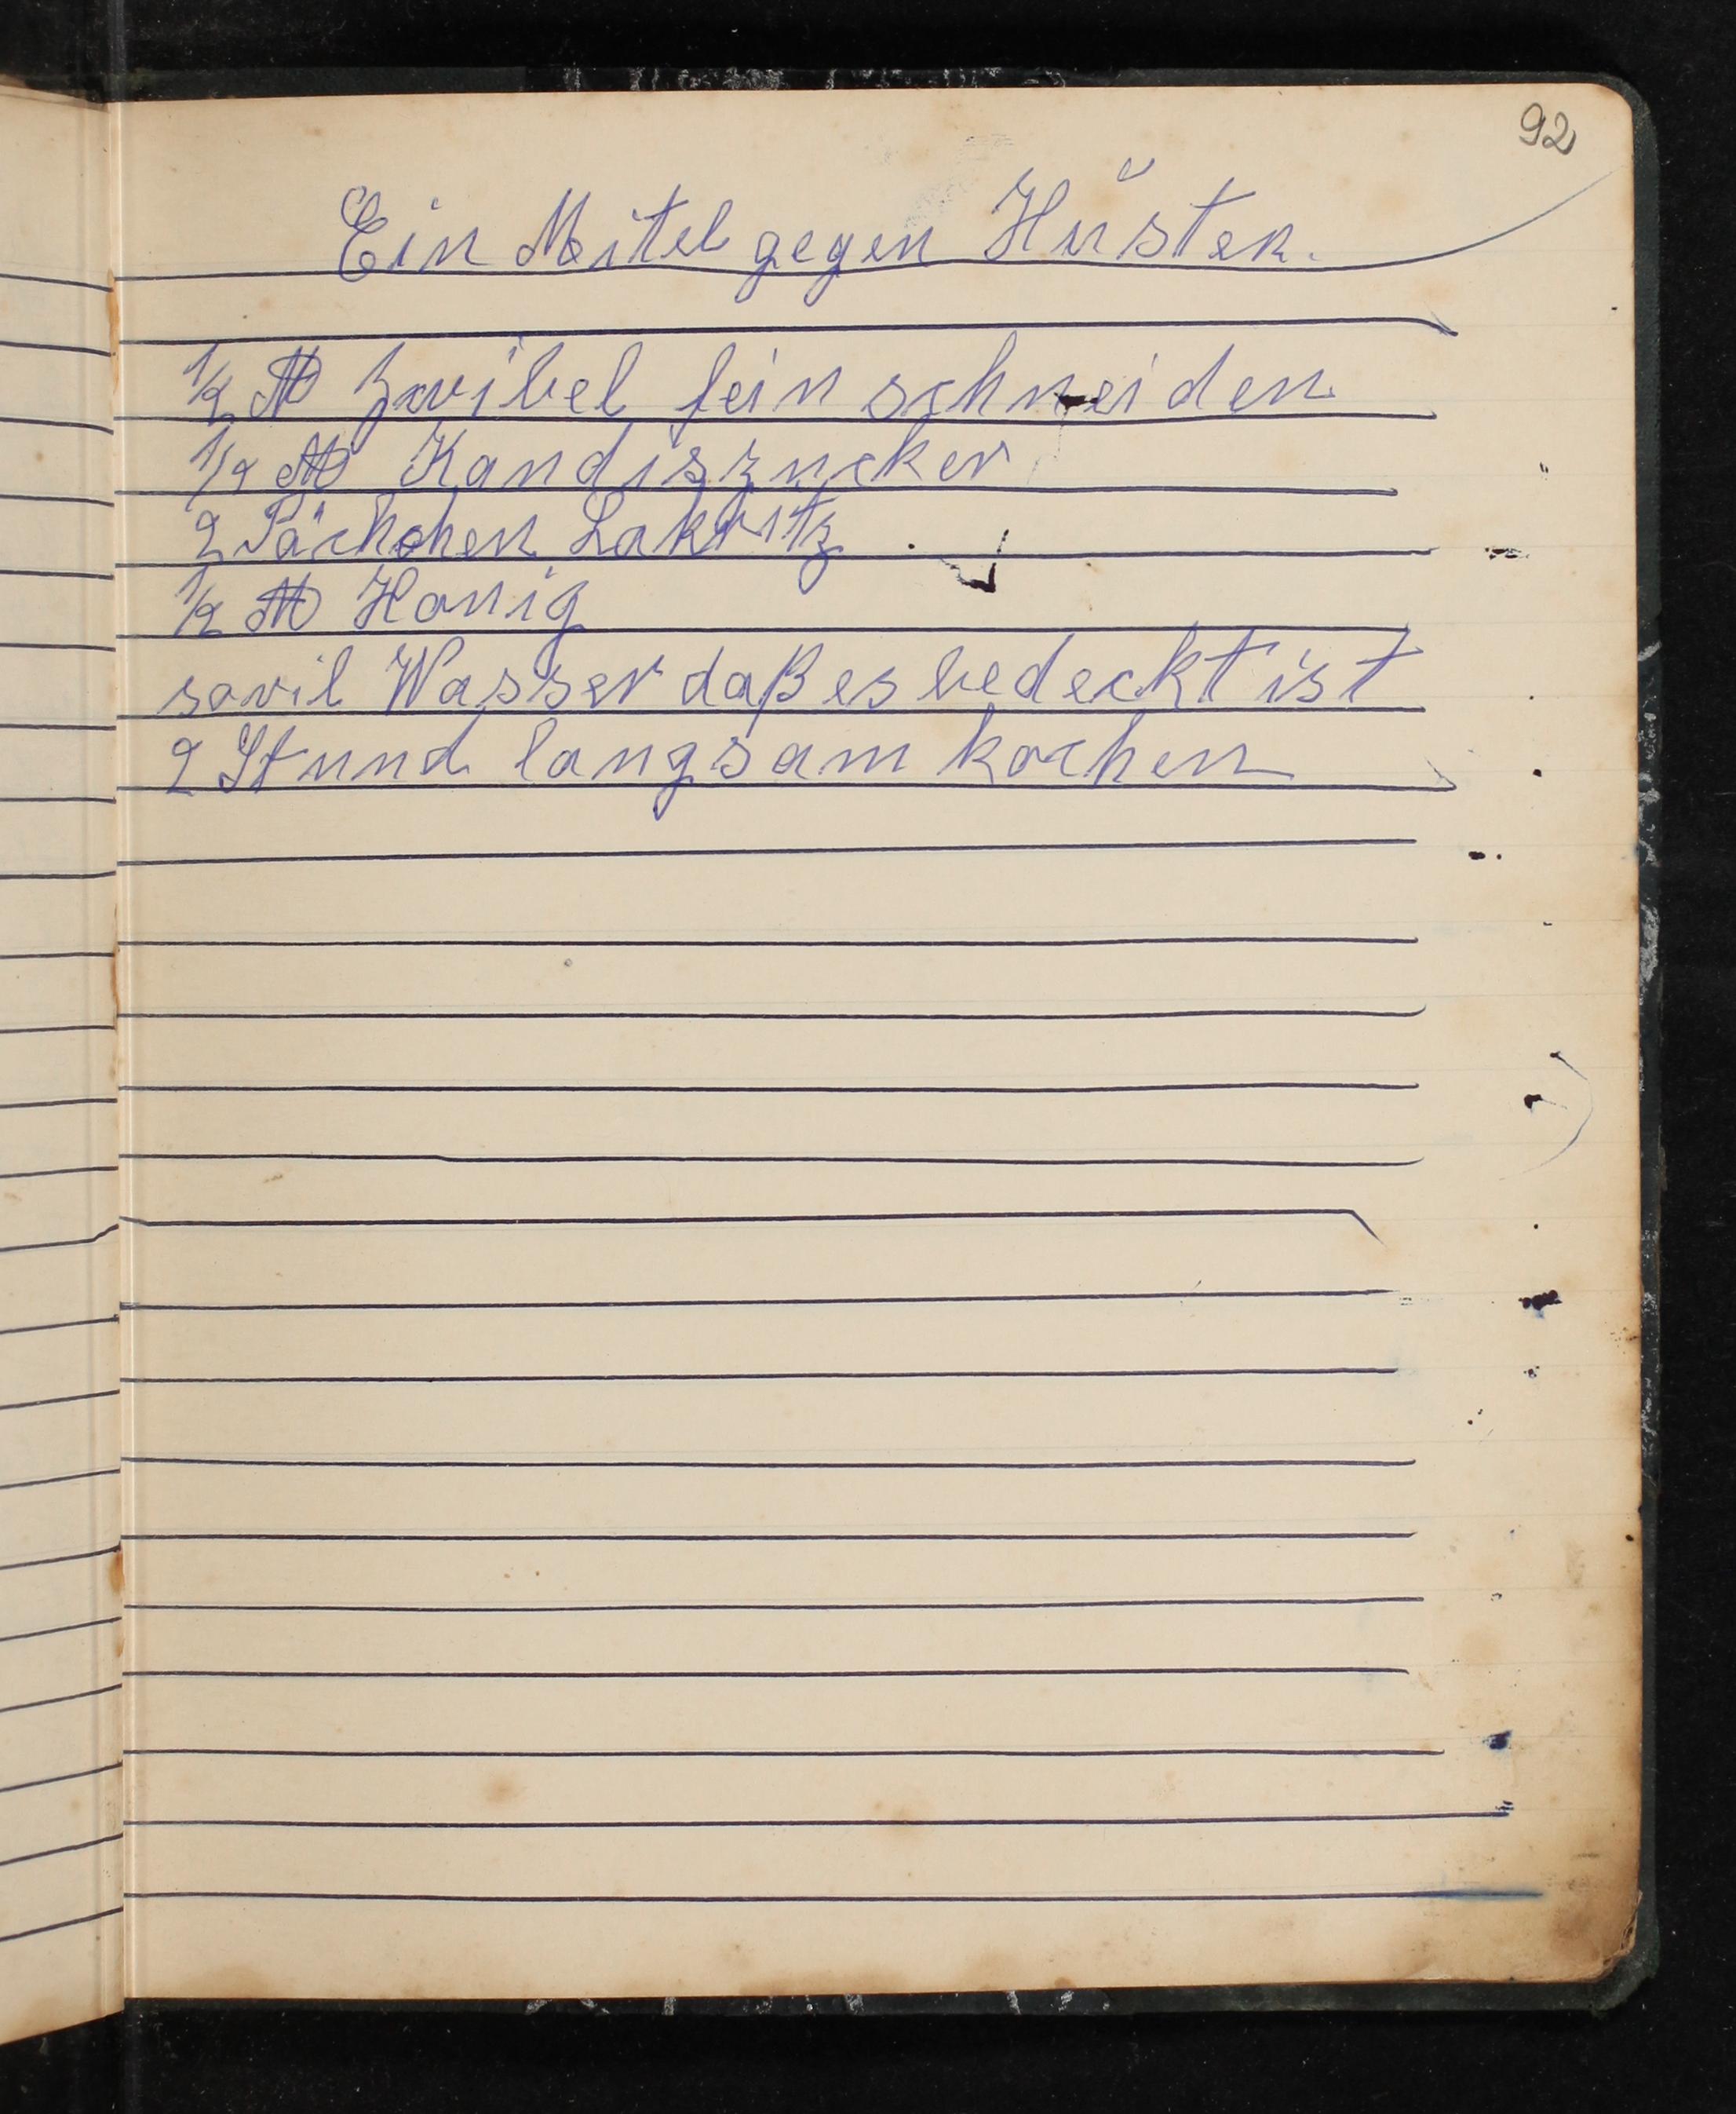 92
Ein Mitel gegen Husten.
1/2 ℔ Zwibel fein schneiden
1/2 ℔ Kandiszucker
2 Päckchen Lakritz
1/2 ℔ Honig
sovil Wasser daß es bedeckt ist
2 Stund langsam kochen